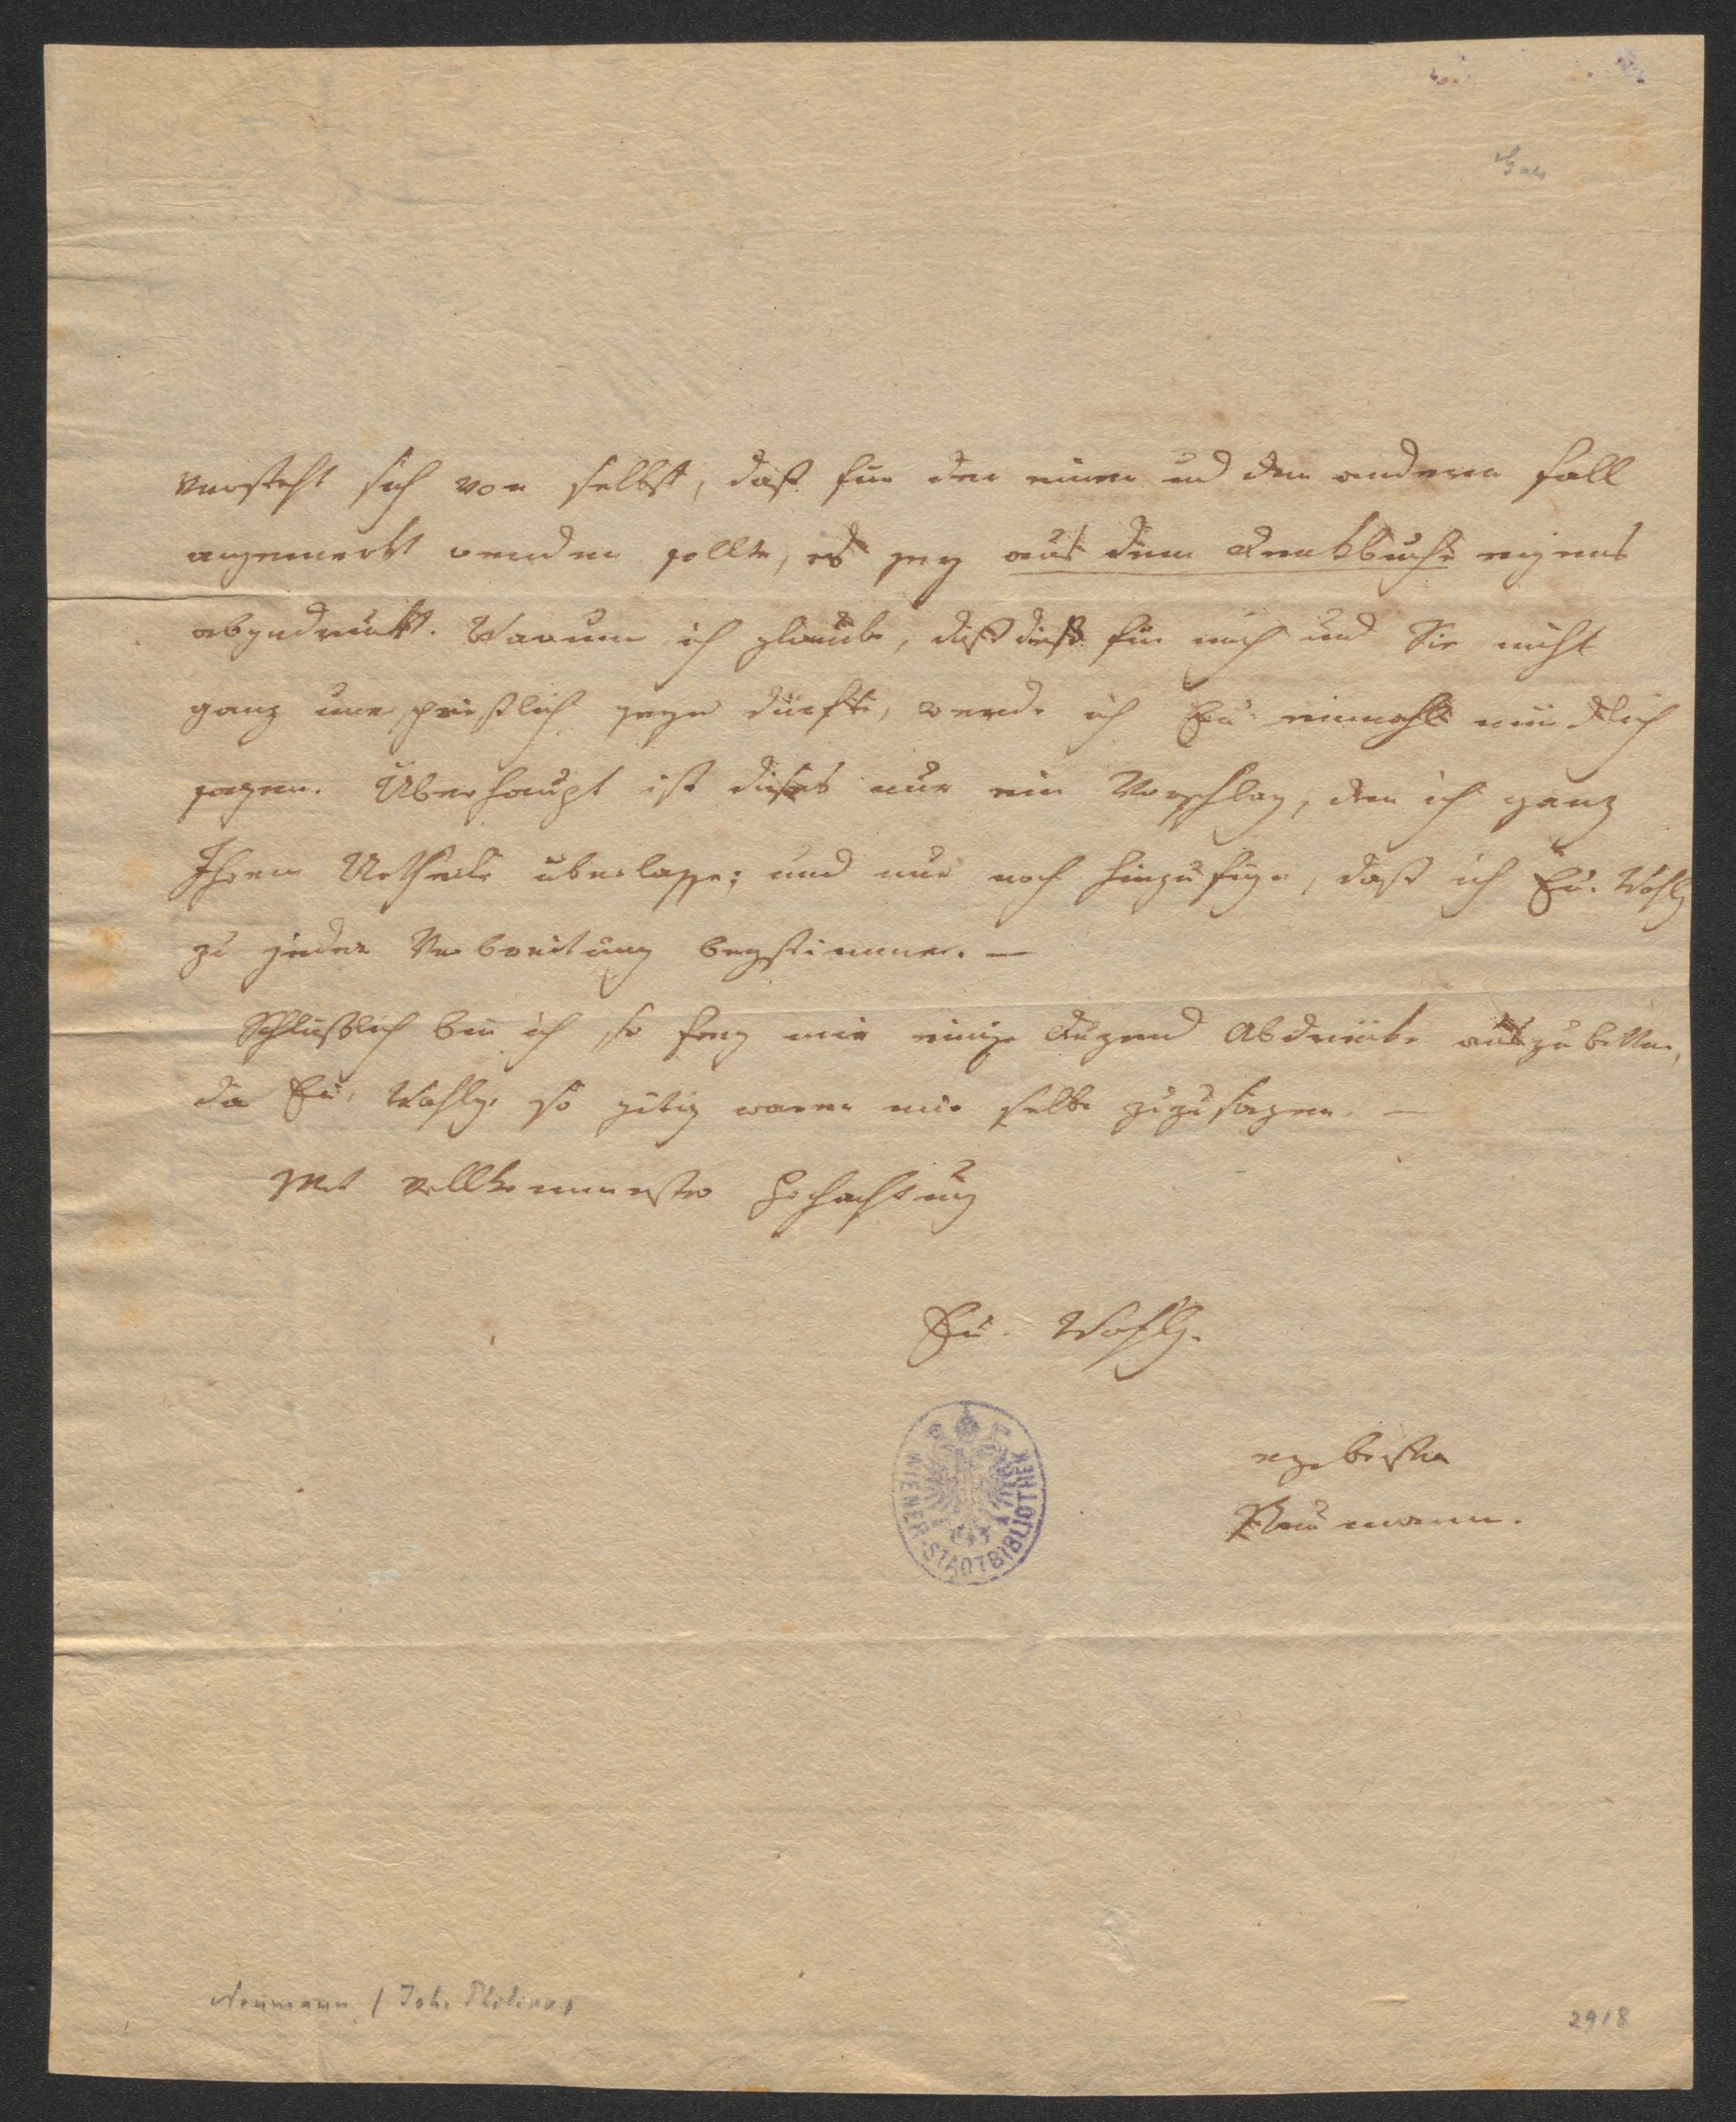 versteht sich von selbst, daß für den einen und den anderen Fall
angemerkt werden sollte, es sey aus dem Denkbuche eigens
abgedruckt. Warum ich glaube, daß dieß für mich und Sie nicht
ganz unersprießlich seyn dürfte, werde ich Eu. einmahl mündlich
sagen. Überhaupt ist dieses nur ein Vorschlag, den ich ganz
Ihrem Urtheile überlasse; und nur noch hinzufüge, daß ich Eu. Wohlg
zu jeder Verbreitung beystimme. —
Schlüßlich bin ich so frey mir einige Duzend Abdrücke auszubitten,
da Eu. Wohlg. so gütig waren mir selbe zuzusagen. —
Mit vollkommenster Hochachtung
Eu. Wohlg.
WIENER STADTBIBLIOTHEK
ergebenster
Neumann.
Neumann / Joh. Philipp
2918